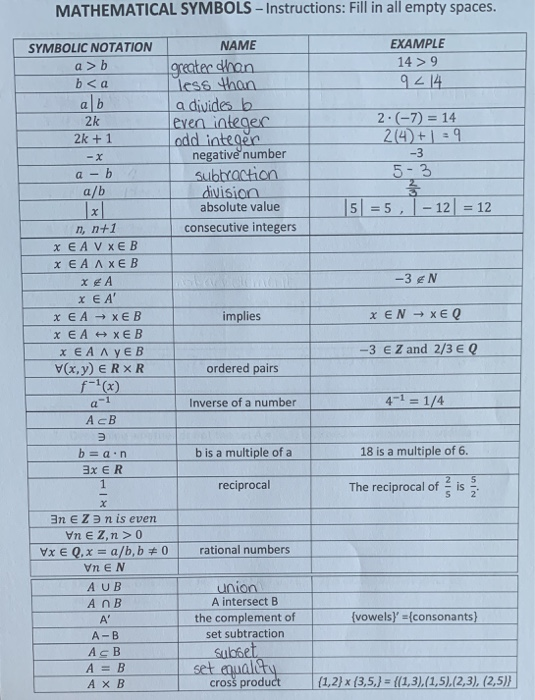 MATHEMATICAL SYMBOLS – Instructions: Fill in all empty spaces.
SYMBOLIC NOTATION NAME EXAMPLE
a > b greater than 14 > 9
b < a less than 9 < 14
a|b a divides b
2k even integer 2·(−7) = 14
2k + 1 odd integer 2(4)+1 = 9
−x negative number −3
a − b subtraction 5-3
a/b division 2/3
|x| absolute value |5| = 5 , |−12| = 12
n, n+1 consecutive integers
x ∈ A ∨ x ∈ B
x ∈ A ∧ x ∈ B
x ∉ A −3 ∉ N
x ∈ A′
x ∈ A → x ∈ B implies x ∈ N → x ∈ Q
x ∈ A ↔ x ∈ B
x ∈ A ∧ y ∈ B −3 ∈ Z and 2/3 ∈ Q
∀(x,y) ∈ R × R ordered pairs
f⁻¹(x)
a⁻¹ Inverse of a number 4⁻¹ = 1/4
A ⊂ B
∋
b = a · n b is a multiple of a 18 is a multiple of 6.
∃x ∈ R
1/x reciprocal The reciprocal of 2/5 is 5/2.
∃n ∈ Z ∋ n is even
∀n ∈ Z, n > 0
∀x ∈ Q, x = a/b, b ≠ 0 rational numbers
∀n ∈ N
A ∪ B union
A ∩ B A intersect B
A′ the complement of {vowels}′ ={consonants}
A − B set subtraction
A ⊆ B subset
A = B set equality
A × B cross product {1,2} x {3,5,} = {(1,3),(1,5),(2,3), (2,5)}